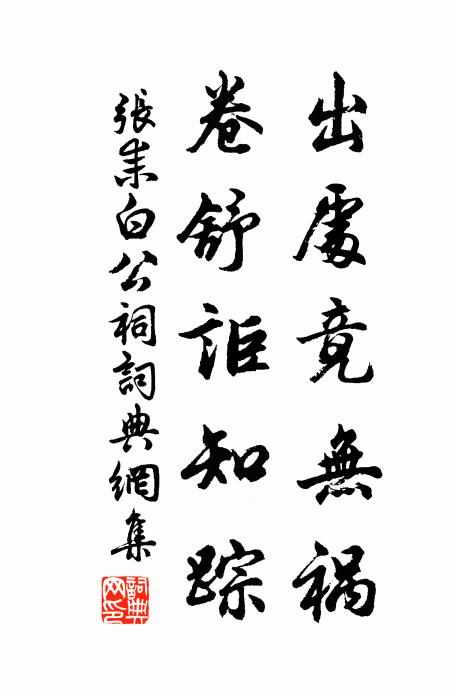 出處竟無禍
卷舒詎知踪
張耒白公祠詞典網集
詞典網印